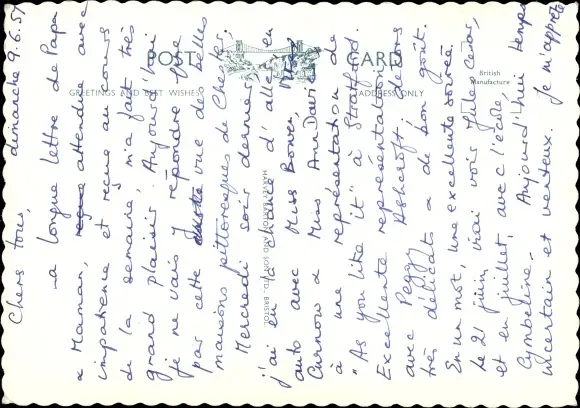 POST CARD
GREETINGS AND BEST WISHES
ADDRESS ONLY
British
Manufacture
HARVEY BARTON AND SON LTD., BRISTOL
dimanche 9.6.57
Chers tous,
La longue lettre de Papa
& Maman, attendue avec
impatience et reçue au cours
de la semaine, m'a fait très
grand plaisir. Aujourd'hui
je ne vais y répondre que
par cette vue de vieilles
maisons pittoresques de Chester.
Mercredi soir dernier,
j'ai eu la chance d'aller en
auto avec Miss Bower,
Curnow & Miss Ann Davis
à une représentation de
"As you like it" à Stratford.
Excellente représentation
avec Peggy Ashcroft, décors
très délicats & de bon goût.
En un mot, une excellente soirée.
Le 21 juin, j'irai voir Jules César,
et en juillet, avec l'école,
Cymbeline. Aujourd'hui temps
incertain et venteux. Je m'apprête